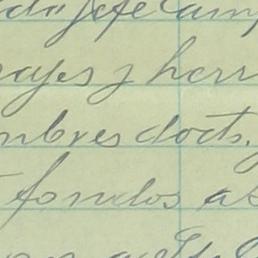 da jefe camp
ages y herr
mbres docts.
fondos as